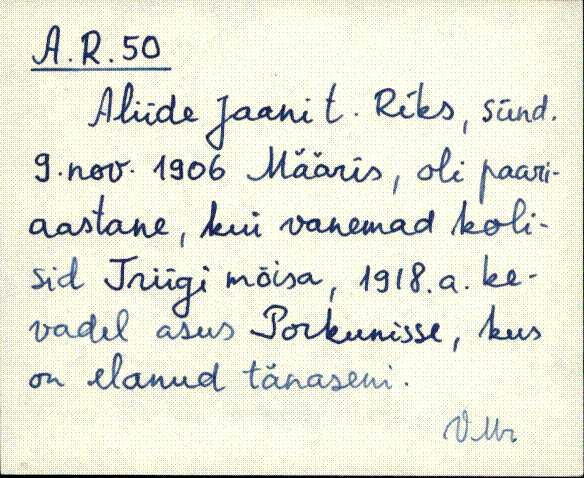 A.R.50
Aliide Jaani t. Riks, sünd.
9. nov. 1906 Määris, oli paari-
aastane, kui vanemad koli-
sid Triigi mõisa, 1918.a. ke-
vadel asus Porkunisse, kus
on elanud tänaseni.